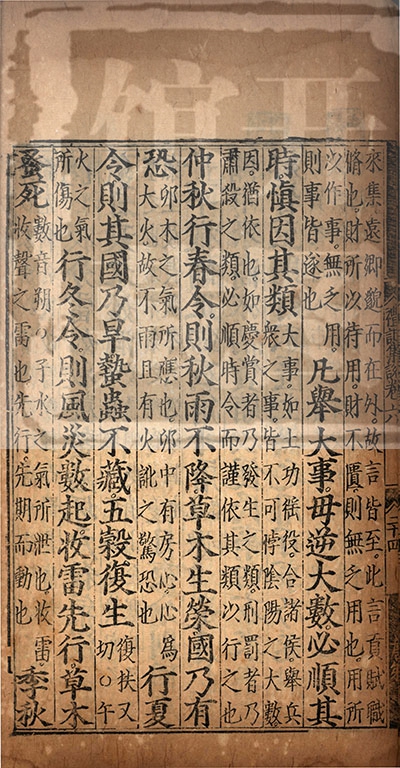 來集遠鄉貌而在外。故言皆至。此言貢賦職
脩也。財所以待用。財不匱則無乏用也。用所
以作事。無乏用
則事皆遂也
凡舉大事毋逆大數必順其
時慎因其類
大事如土功徭役合諸侯舉兵
衆之事皆不可悖陰陽之大數
因猶依也如慶賞者乃發生之類刑罰者乃
肅殺之類必順時令而謹依其類以行之也
仲秋行春令則秋雨不降草木生榮國乃有
恐
卯木之氣所應也。卯中有房心。心為
大火故不雨且有火訛之驚恐也
行夏
令則其國乃旱蟄蟲不藏。五穀復生
復扶又
切○午
火之氣
所傷也
行冬令。則風災數起收雷先行。草木
蚤死
數音朔○子水之氣所泄也收雷
收聲之雷也先行。先期而動也
季秋